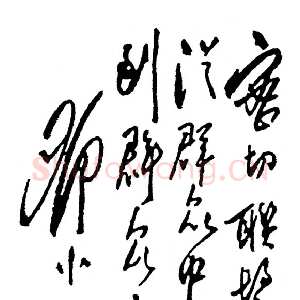 密切联
从群众中
到群众
邓小